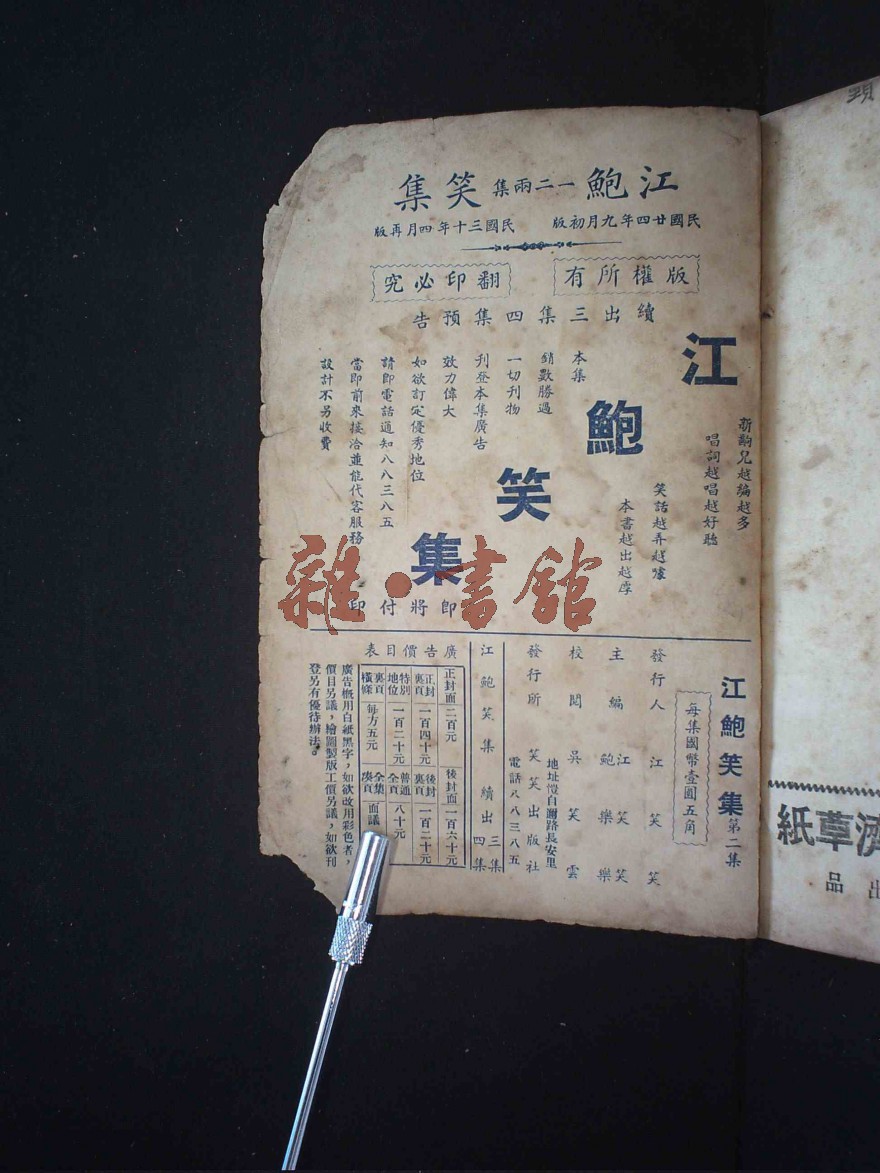 江鮑一二兩集笑集
民國廿四年九月初版　民國三十年四月再版
版權所有　翻印必究
續出三集四集預告
江鮑笑集
新齣兒越編越多
唱詞越唱越好聽
笑話越弄越噱
本書越出越厚
本集
銷數勝過
一切刊物
刊登本集廣告
效力偉大
如欲訂定優秀地位
請即電話通知八八三八五
當即前來接洽並能代客服務
設計不另收費
即將付印
江鮑笑集第二集
每集國幣壹圓五角
發行人　江笑笑
主編　江笑笑
鮑樂樂
校閱　吳笑雲
發行所　笑笑出版社
地址愷自邇路長安里
電話八八三八五
江鮑笑集續出三集四集
廣告價目表
正封面　二百元　後封面　一百六十元
正封裏頁　一百四十元　後封裏頁　一百二十元
特別地位　一百二十元　普通全頁　八十元
裏頁橫條　每方五元　全集湊頁　面議
廣告概用白紙黑字，如欲改用彩色者，
價目另議，繪圖製版工價另議，如欲刊
登另有優待辦法。
雜·書館
濟草紙
出品